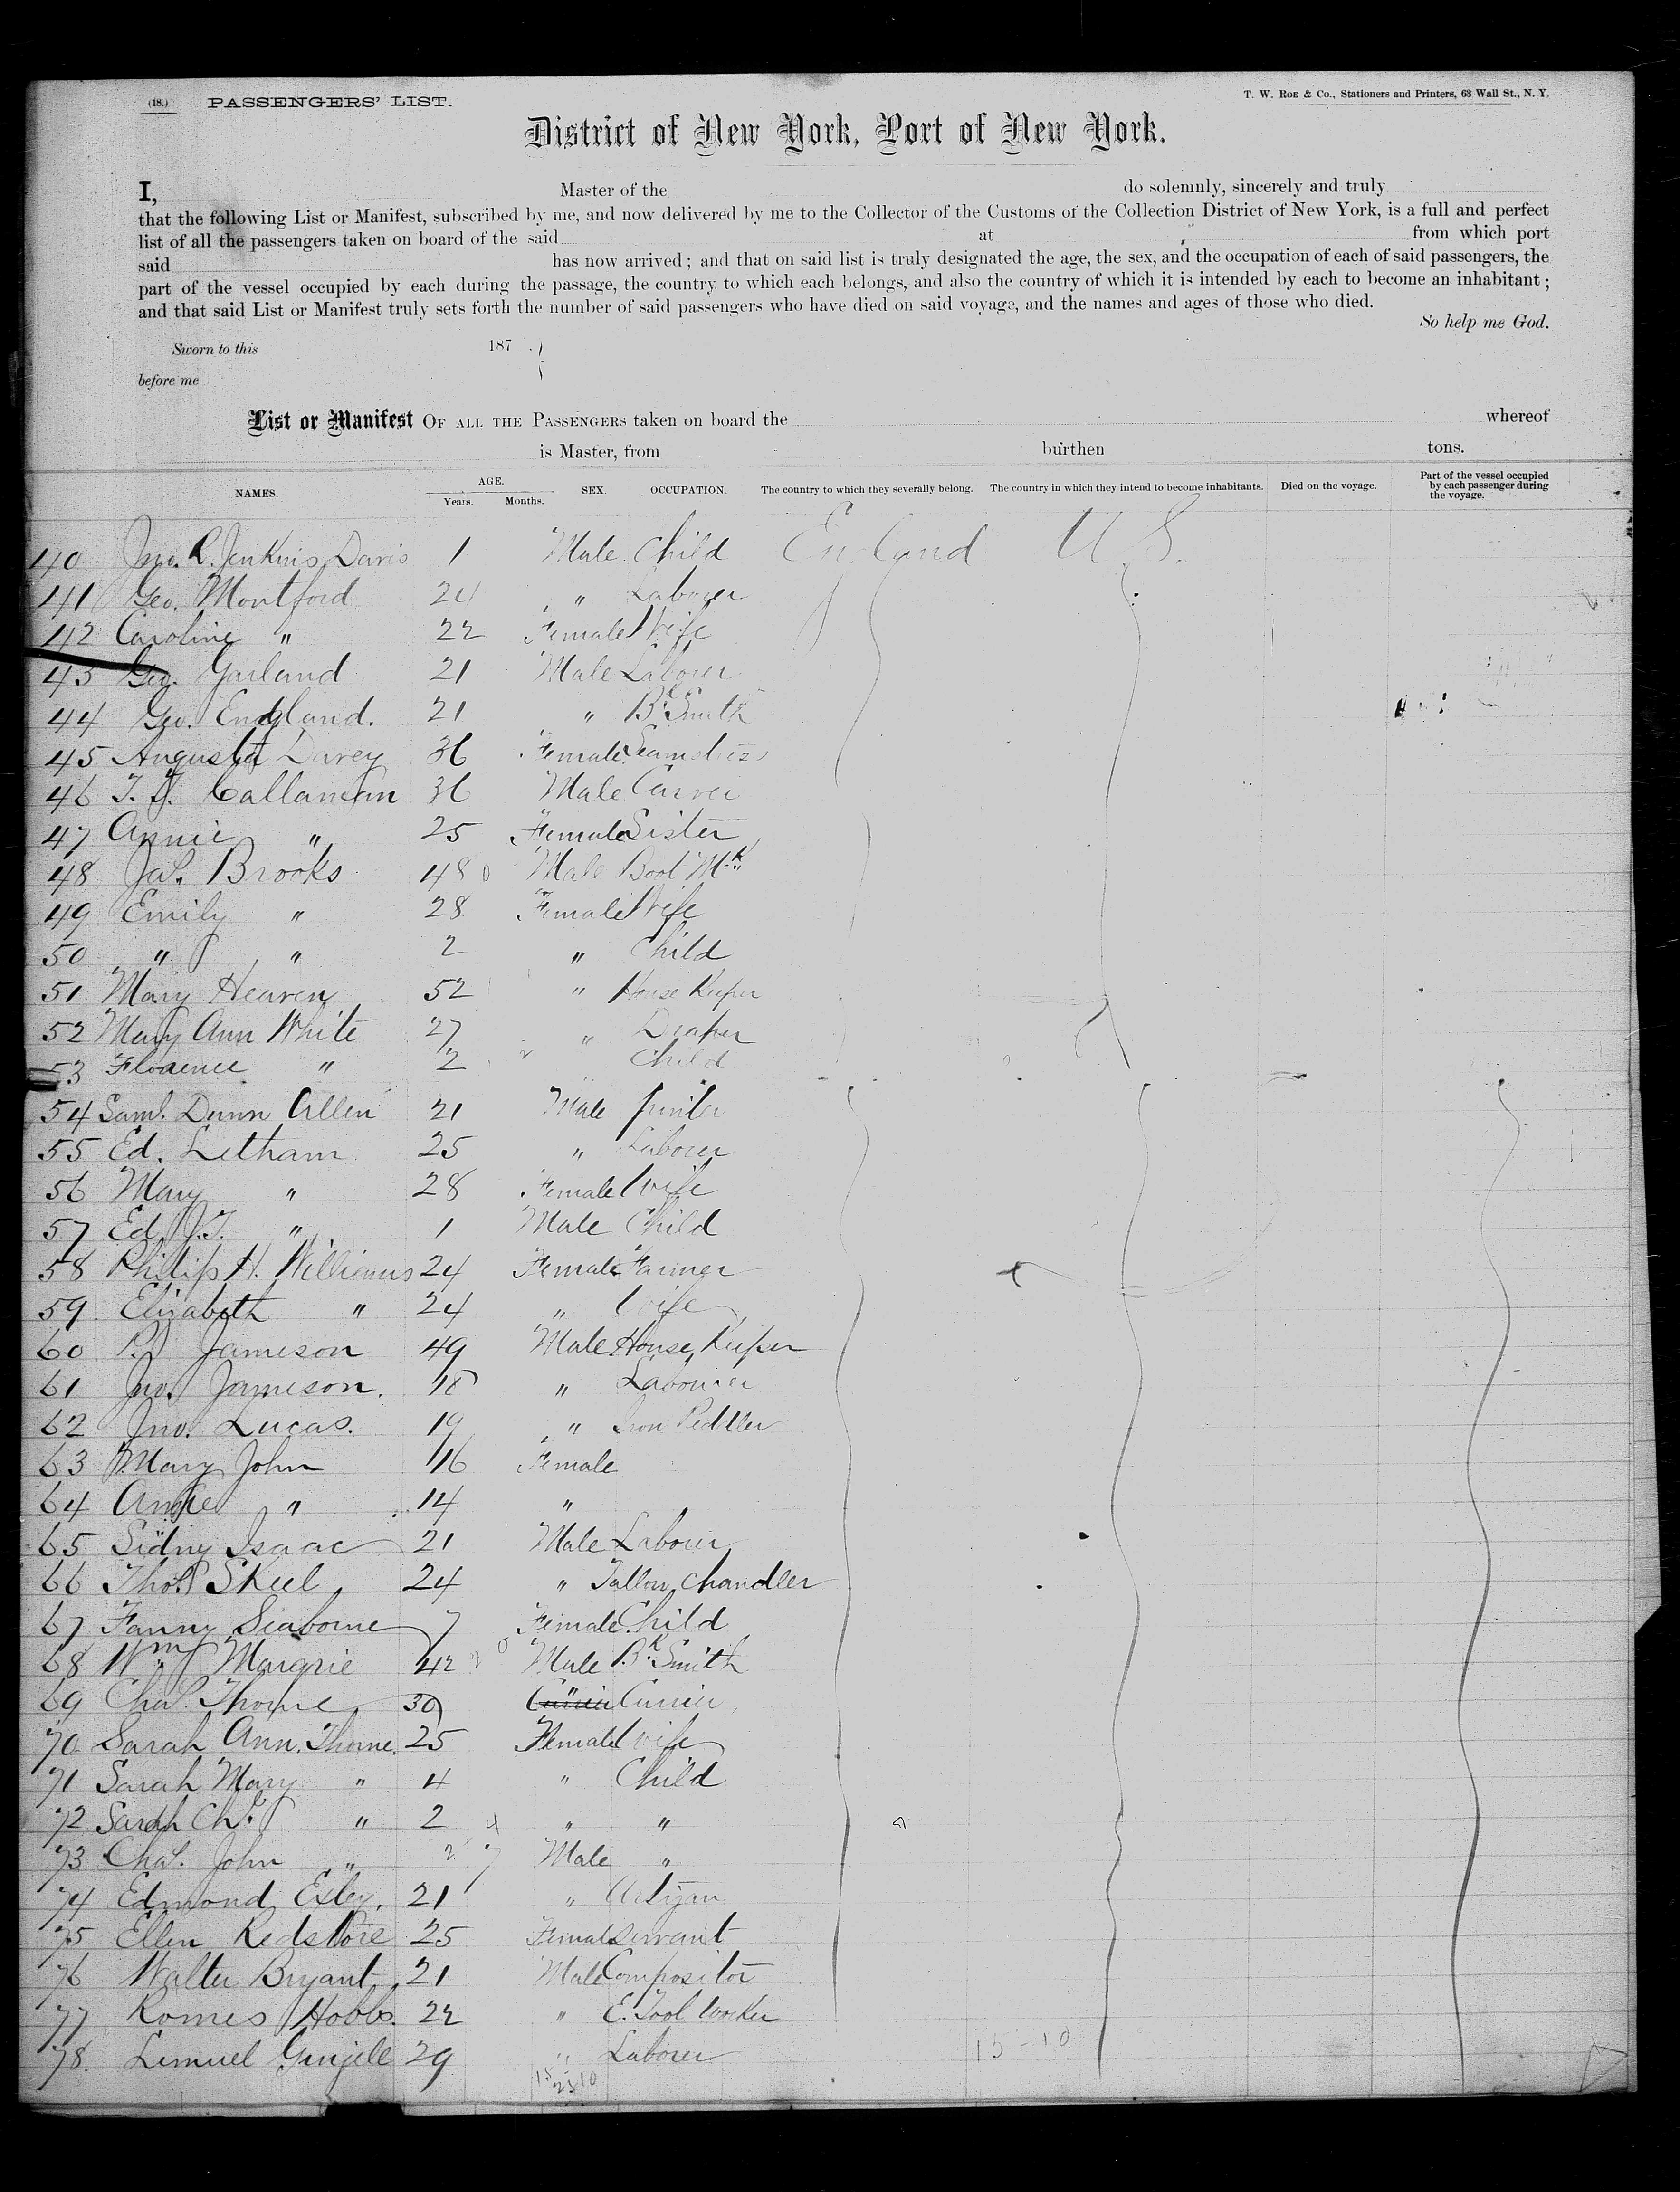 (18.) PASSENGERS' LIST.
T. W. Roe & Co., Stationers and Printers, 63 Wall St., N. Y.
District of New York, Port of New York.
I, Master of the do solemnly, sincerely and truly
that the following List or Manifest, subscribed by me, and now delivered by me to the Collector of the Customs of the Collection District of New York, is a full and perfect
list of all the passengers taken on board of the said at from which port
said has now arrived; and that on said list is truly designated the age, the sex, and the occupation of each of said passengers, the
part of the vessel occupied by each during the passage, the country to which each belongs, and also the country of which it is intended by each to become an inhabitant;
and that said List or Manifest truly sets forth the number of said passengers who have died on said voyage, and the names and ages of those who died.
So help me God.
Sworn to this 187
before me
List or Manifest OF ALL THE PASSENGERS taken on board the whereof
is Master, from burthen tons.
NAMES. AGE. Years. Months. SEX. OCCUPATION. The country to which they severally belong. The country in which they intend to become inhabitants. Died on the voyage. Part of the vessel occupied by each passenger during the voyage.
40 Jno. R. Jenkins Davis 1 Male Child England U.S.
41 Geo. Montford 24 " Laborer
42 Caroline " 22 Female Wife
43 Geo. Garland 21 Male Laborer
44 Geo. England. 21 " Bk Smith
45 Augusta Davey 36 Female Seamstress
46 T. J. Callanan 36 Male Carver
47 Annie " 25 Female Sister
48 Jas. Brooks 48 Male Boot Mkr
49 Emily " 28 Female Wife
50 " " 2 " Child
51 Mary Heaven 52 " House Keeper
52 Mary Ann White 27 " Draper
53 Florence " 2 " Child
54 Saml. Dunn Allen 21 Male
55 Ed. Letham 25 " Laborer
56 Mary " 28 Female Wife
57 Ed. J.T. " 1 Male Child
58 Philip H. Williams 24 Female Farmer
59 Elizabeth " 24 " Wife
60 Jameson 49 Male House Keeper
61 Jno. Jameson. 18 " Labourer
62 Jno. Lucas. 19 " Iron Peddler
63 Mary John 16 Female
64 Annie " 14 "
65 Sidney Isaac 21 Male Laborer
66 Thos. Skeel 24 " Tallow Chandler
67 Fanny Seaborne 7 Female Child
68 Wm Margrie 42 Male Bk Smith
69 Chas. Thorne 30 Currier
70 Sarah Ann. Thorne. 25 Female Wife
71 Sarah Mary " 4 " Child
72 Sarah Ch. " 2 " "
73 Chas. John " Male "
74 Edmond Exley. 21 " Artizan
75 Ellen Redstone 25 Female Servant
76 Walter Bryant 21 Male Compositor
77 Romes Hobbs. 22 " E. Tool Worker
78. Lemuel Gingell 29 " Laborer
15-10